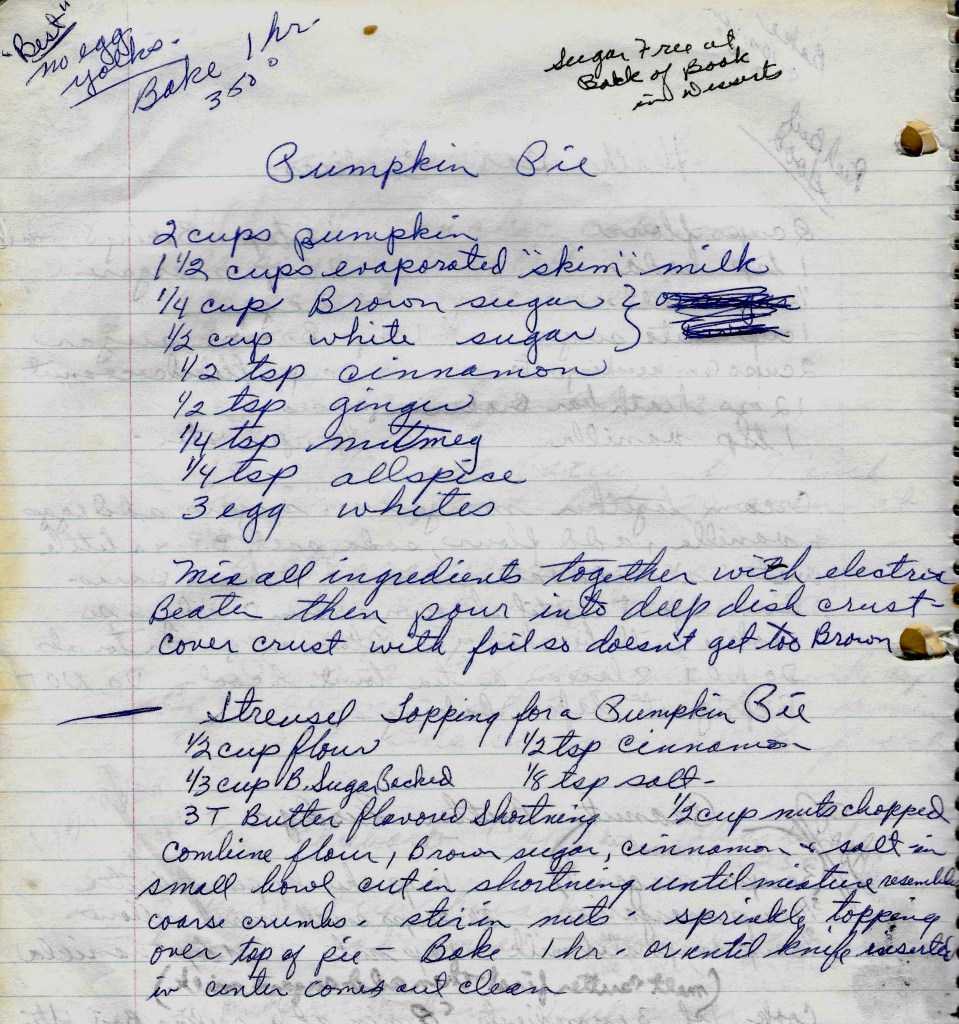 "Best"
no egg
yolks.
Bake 1 hr.
350°
Sugar Free at
Back of Book
in Desserts
Pumpkin Pie
2 cups pumpkin
1 1/2 cups evaporated "skim" milk
1/4 cup Brown sugar }
1/2 cup white sugar }
1/2 tsp cinnamon
1/2 tsp ginger
1/4 tsp nutmeg
1/4 tsp allspice
3 egg whites
Mix all ingredients together with electric
Beater then pour into deep dish crust -
Cover crust with foil so doesn't get too Brown
Streusel Topping for a Pumpkin Pie
1/2 cup flour 1/2 tsp cinnamon
1/3 cup B. Sugar Packed 1/8 tsp salt -
3 T Butter flavored Shortning 1/2 cup nuts chopped
Combine flour, Brown sugar, cinnamon & salt in
small bowl cut in shortning until mixture resembles
coarse crumbs. stir in nuts. sprinkle topping
over top of pie - Bake 1 hr. or until knife inserted
in center comes out clean